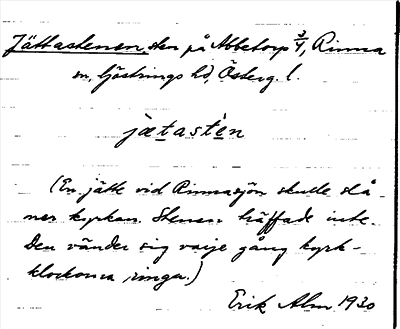 Jättastenen, sten på Abbetorp 3/4, Rinna
sn, Göstrings hd, Österg. l.
jætastèn
(En jätte vid Rinnasjön skulle slå
ner kyrkan. Stenen träffade inte.
Den vänder sig varje gång kyrk-
klockorna ringa.)
Erik Alm 1930